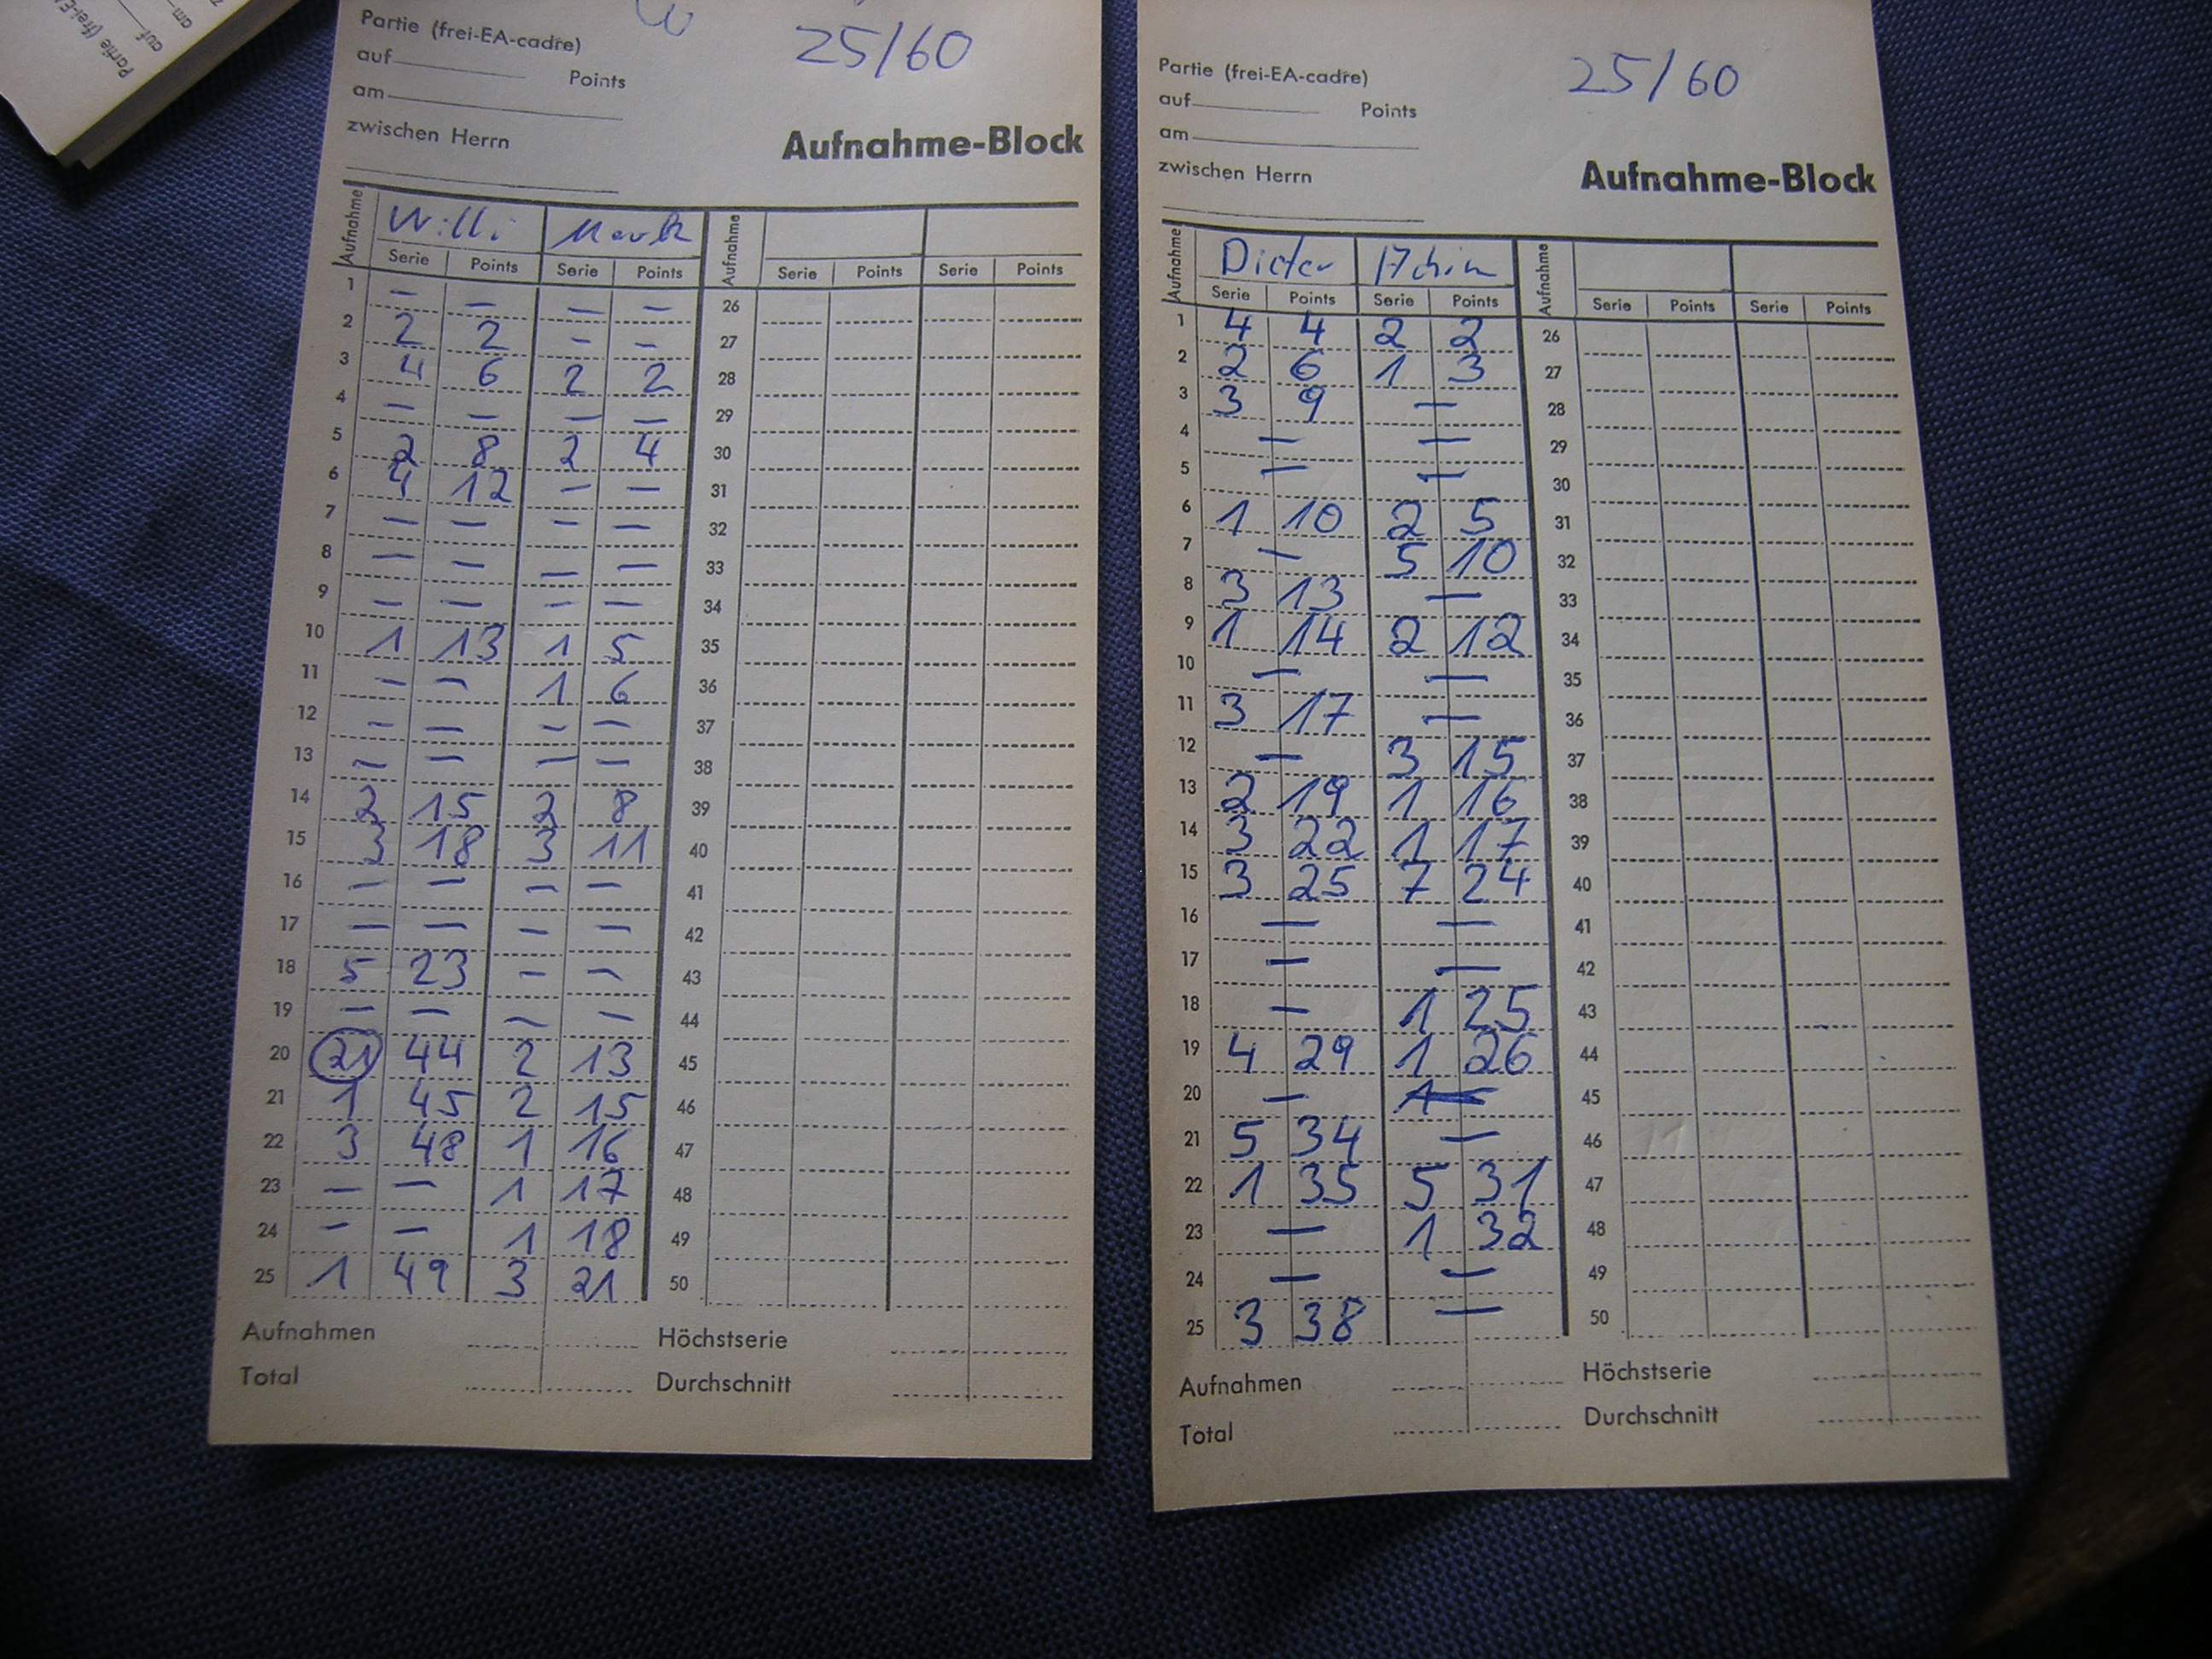 Partie (frei-EA-cadre)
auf
am
Partie (frei-EA-cadre)
25/60
auf Points
am
zwischen Herrn
Aufnahme-Block
Aufnahme Willi Mark Aufnahme
Serie Points Serie Points Serie Points Serie Points
1 – – – – 26
2 2 2 – – 27
3 4 6 2 2 28
4 – – – – 29
5 2 8 2 4 30
6 4 12 – – 31
7 – – – – 32
8 – – – – 33
9 – – – – 34
10 1 13 1 5 35
11 – – 1 6 36
12 – – – – 37
13 – – – – 38
14 2 15 2 8 39
15 3 18 3 11 40
16 – – – – 41
17 – – – – 42
18 5 23 – – 43
19 – – – – 44
20 21 44 2 13 45
21 1 45 2 15 46
22 3 48 1 16 47
23 – – 1 17 48
24 – – 1 18 49
25 1 49 3 21 50
Aufnahmen Höchstserie
Total Durchschnitt
25/60
Partie (frei-EA-cadre)
auf Points
am
zwischen Herrn
Aufnahme-Block
Aufnahme Dieter Achim Aufnahme
Serie Points Serie Points Serie Points Serie Points
1 4 4 2 2 26
2 2 6 1 3 27
3 3 9 – 28
4 – – 29
5 – – 30
6 1 10 2 5 31
7 – 5 10 32
8 3 13 – 33
9 1 14 2 12 34
10 – – 35
11 3 17 – 36
12 – 3 15 37
13 2 19 1 16 38
14 3 22 1 17 39
15 3 25 7 24 40
16 – – 41
17 – – 42
18 – 1 25 43
19 4 29 1 26 44
20 – – 45
21 5 34 – 46
22 1 35 5 31 47
23 – 1 32 48
24 – – 49
25 3 38 – 50
Aufnahmen Höchstserie
Total Durchschnitt